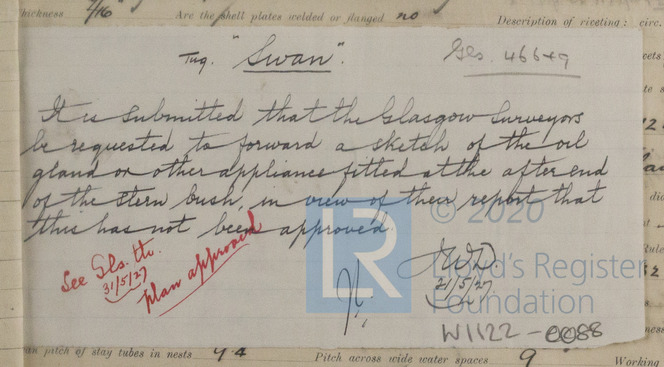 thickness 7/16" Are the shell plates welded or flanged no Description of riveting: circ.
Tug. "Swan".
Gls. 46649
It is submitted that the Glasgow Surveyors
be requested to forward a sketch of the oil
gland or other appliance fitted at the after end
of the stern bush, in view of their report that
this has not been approved.
See Gls. ltr.
31/5/27
plan approved
JWD
21/5/27
© 2020
LR
Lloyd's Register
Foundation
W1122-0088
an pitch of stay tubes in nests Pitch across wide water spaces 9 Working